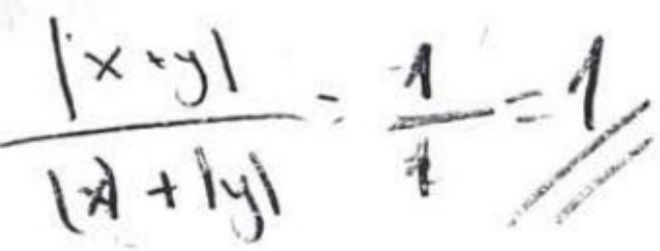 |x+y| / |x| + |y| = 1 / 1 = 1